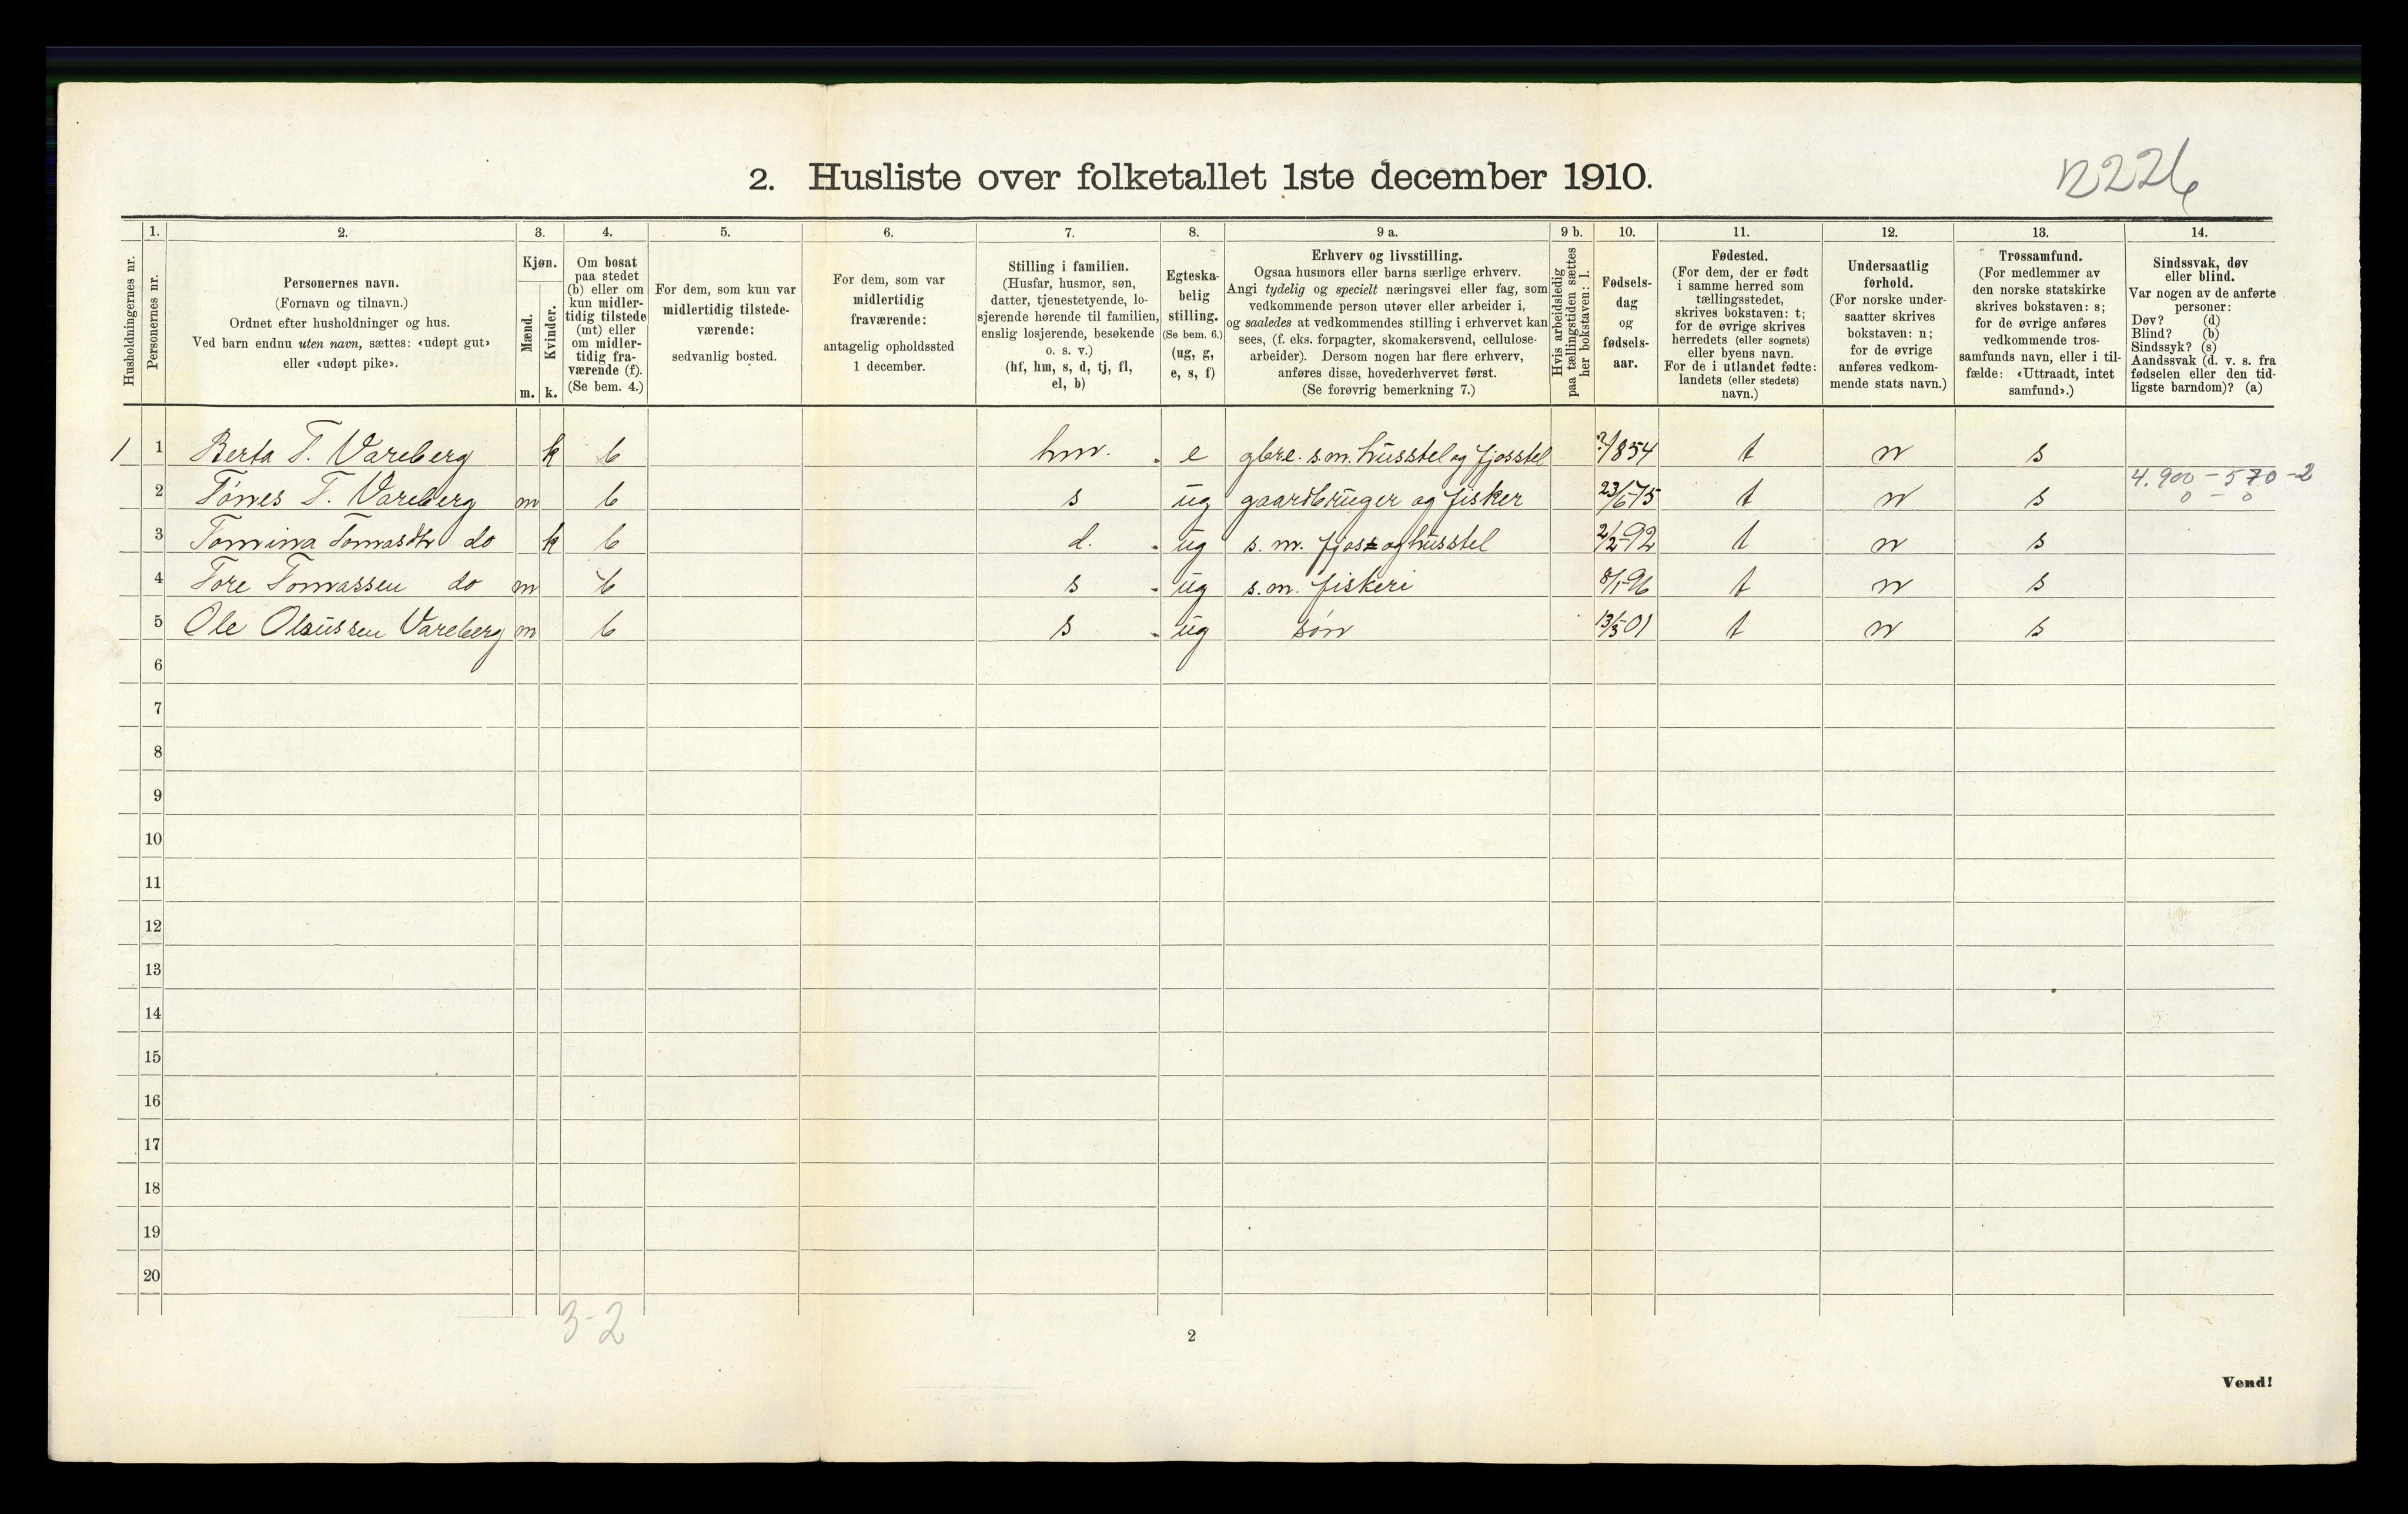 2. Husliste over folketallet 1ste december 1910.
Husholdningernes nr.
1.
Personernes nr.
2.
Personernes navn.
(Fornavn og tilnavn.)
Ordnet efter husholdninger og hus.
Ved barn endnu uten navn, sættes: «udøpt gut»
eller «udøpt pike».
3.
Kjøn.
Mænd.
Kvinder.
m. k.
4.
Om bosat
paa stedet
(b) eller om
kun midler-
tidig tilstede
(mt) eller
om midler-
tidig fra-
værende (f).
(Se bem. 4.)
5.
For dem, som kun var
midlertidig tilstede-
værende:
sedvanlig bosted.
6.
For dem, som var
midlertidig
fraværende:
antagelig opholdssted
1 december.
7.
Stilling i familien.
(Husfar, husmor, søn,
datter, tjenestetyende, lo-
sjerende hørende til familien,
enslig losjerende, besøkende
o. s. v.)
(hf, hm, s, d, tj, fl,
el, b)
8.
Egteska-
belig
stilling.
(Se bem. 6.)
(ug, g,
e, s, f)
9 a.
Erhverv og livsstilling.
Ogsaa husmors eller barns særlige erhverv.
Angi tydelig og specielt næringsvei eller fag, som
vedkommende person utøver eller arbeider i,
og saaledes at vedkommendes stilling i erhvervet kan
sees, (f. eks. forpagter, skomakersvend, cellulose-
arbeider). Dersom nogen har flere erhverv,
anføres disse, hovederhvervet først.
(Se forøvrig bemerkning 7.)
9 b.
Hvis arbeidsledig
paa tællingstiden sættes
her bokstaven: l.
10.
Fødsels-
dag
og
fødsels-
aar.
11.
Fødested.
(For dem, der er født
i samme herred som
tællingsstedet,
skrives bokstaven: t;
for de øvrige skrives
herredets (eller sognets)
eller byens navn.
For de i utlandet fødte:
landets (eller stedets)
navn.)
12.
Undersaatlig
forhold.
(For norske under-
saatter skrives
bokstaven: n;
for de øvrige
anføres vedkom-
mende stats navn.)
13.
Trossamfund.
(For medlemmer av
den norske statskirke
skrives bokstaven: s;
for de øvrige anføres
vedkommende tros-
samfunds navn, eller i til-
fælde: «Uttraadt, intet
samfund».)
14.
Sindssvak, døv
eller blind.
Var nogen av de anførte
personer:
Døv? (d)
Blind? (b)
Sindssyk? (s)
Aandssvak (d. v. s. fra
fødselen eller den tid-
ligste barndom)? (a)
1 1 Berta T. Vareberg k b hm. e gbre. s.m. husstel og fjosstel 2/1 854 t n s
4.900 - 570 - 2
0 - 0
2 Tönes T. Vareberg m b s ug gaardbruger og fisker 23/6-75 t n s
3 Tomina Tomasdtr do k b d. ug s. m. fjos og husstel 2/2-92 t n s
4 Tore Tomassen do m b s ug s. m. fiskeri 8/1-96 t n s
5 Ole Olaussen Vareberg m b s ug sön 13/3-01 t n s
6
7
8
9
10
11
12
13
14
15
16
17
18
19
20
3-2
2
Vend!